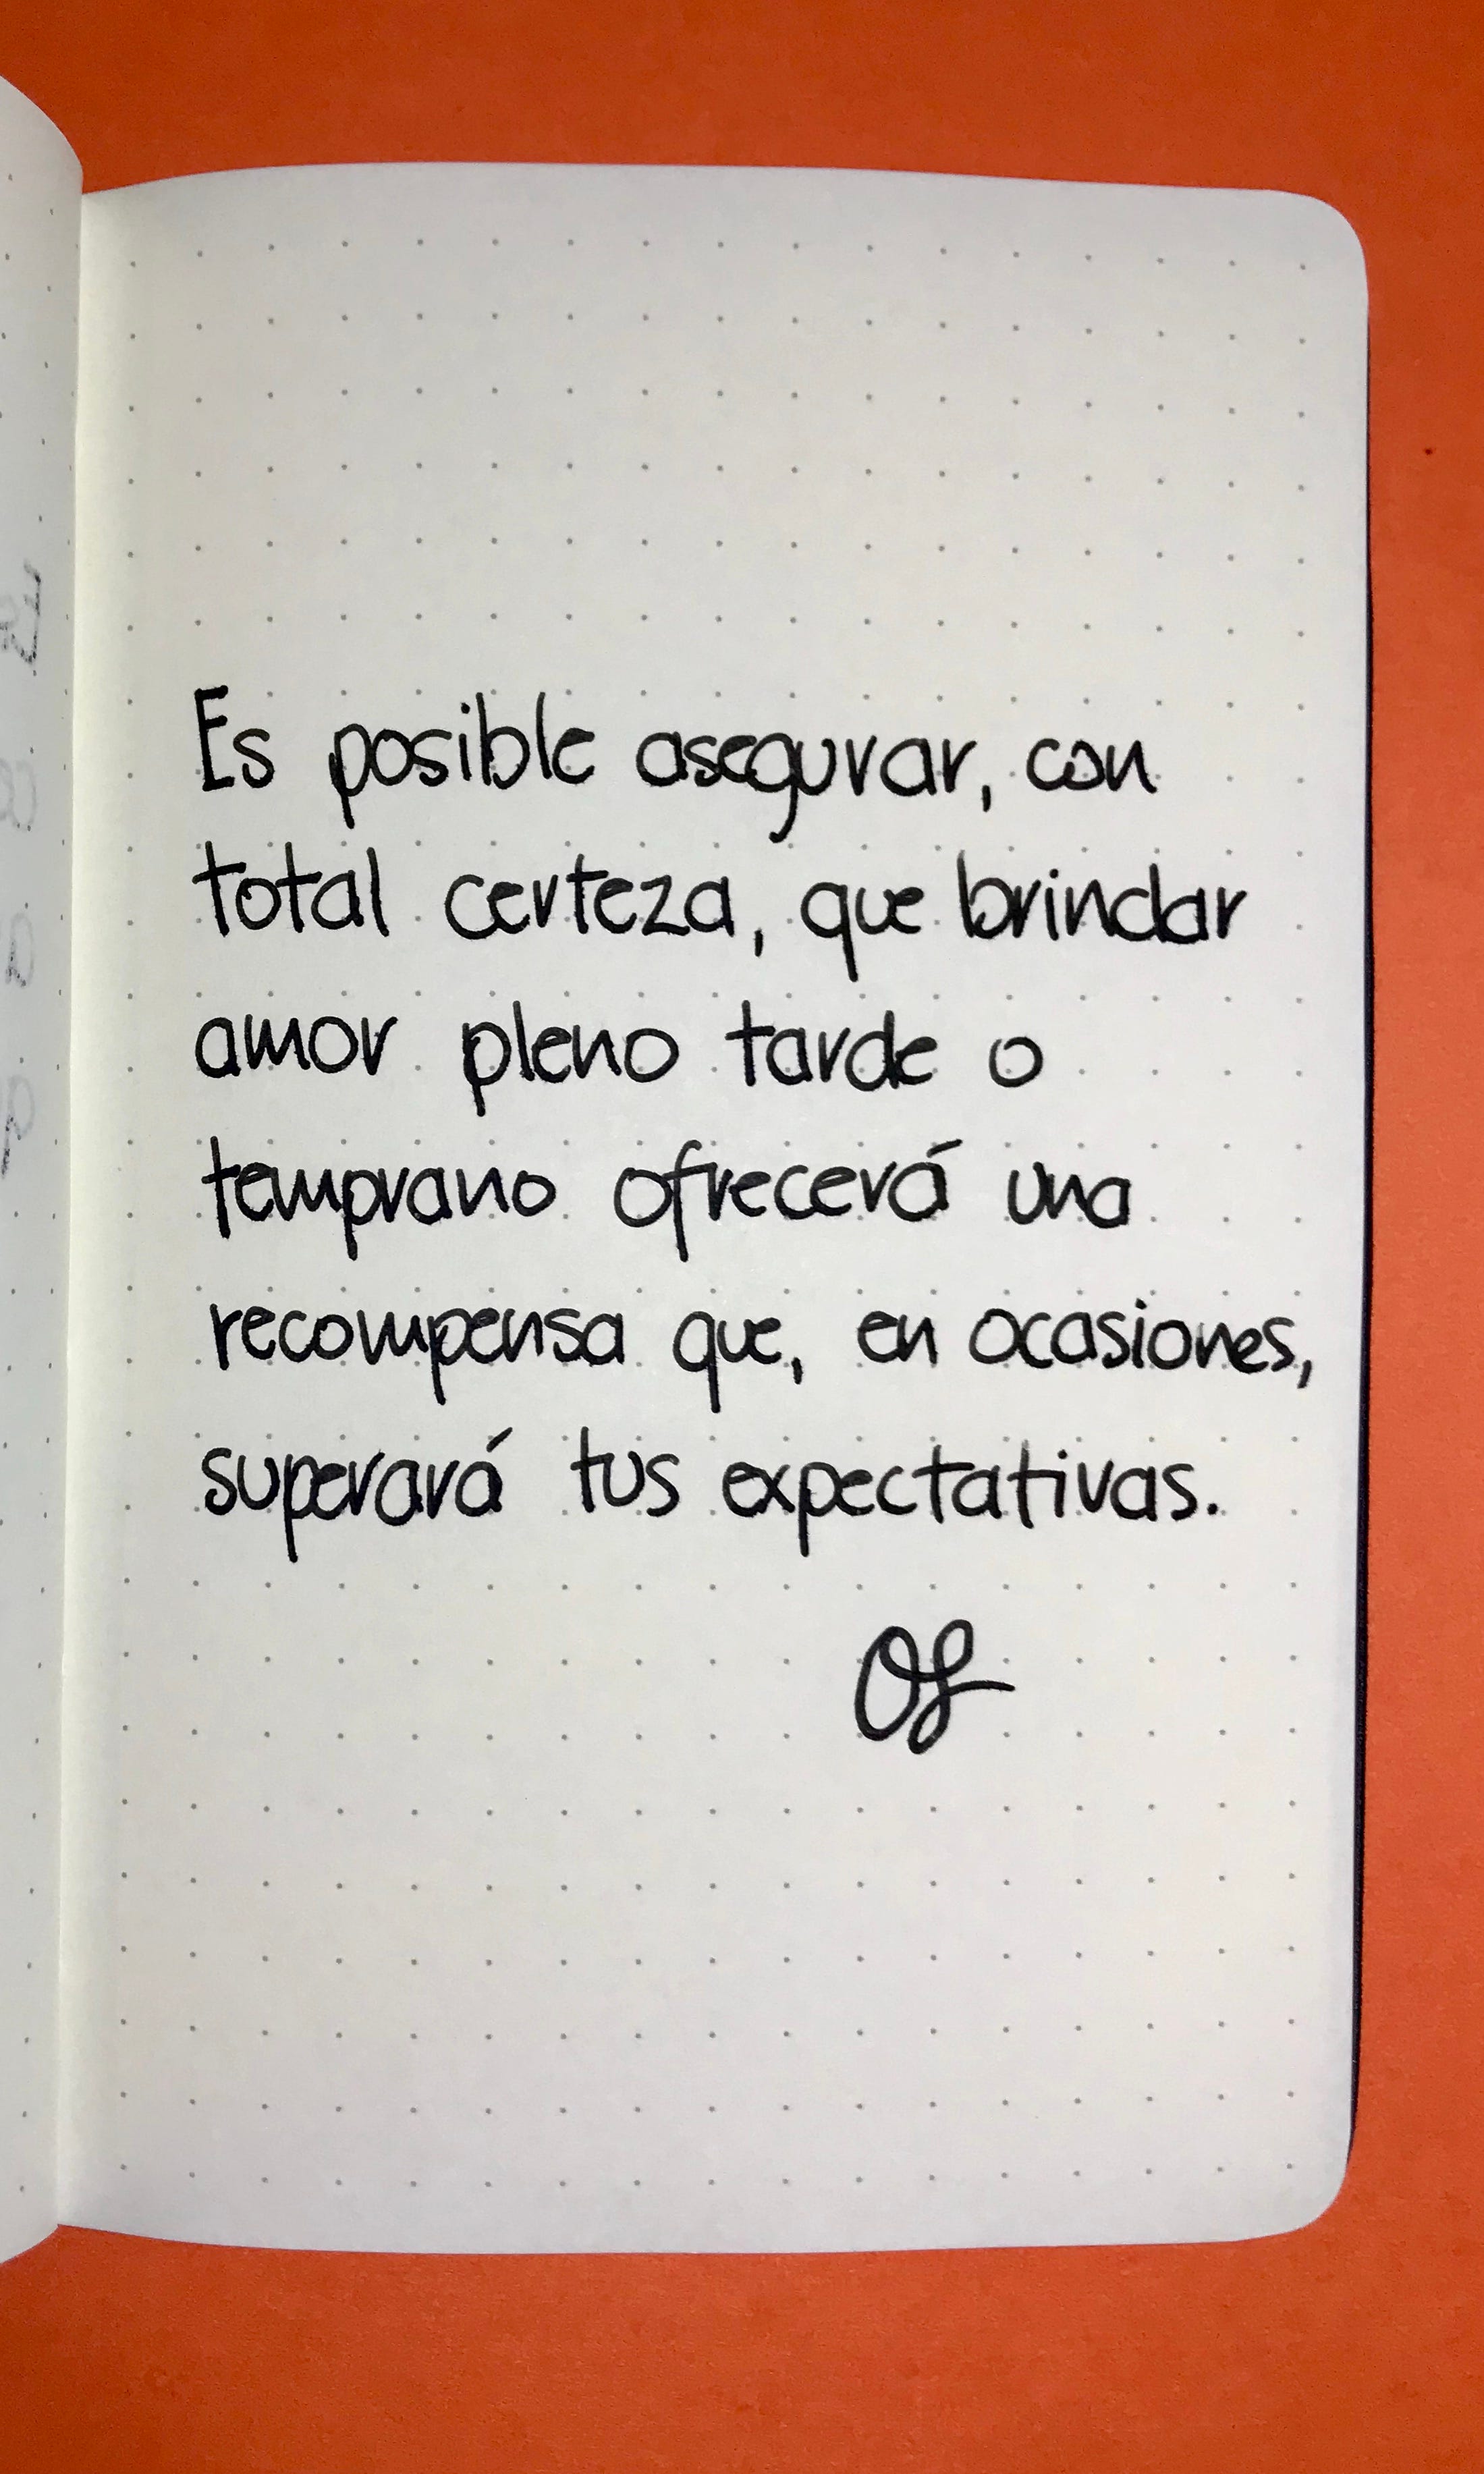 Es posible asegurar, con
total certeza, que brindar
amor pleno tarde o
temprano ofrecerá una
recompensa que, en ocasiones,
superará tus expectativas.